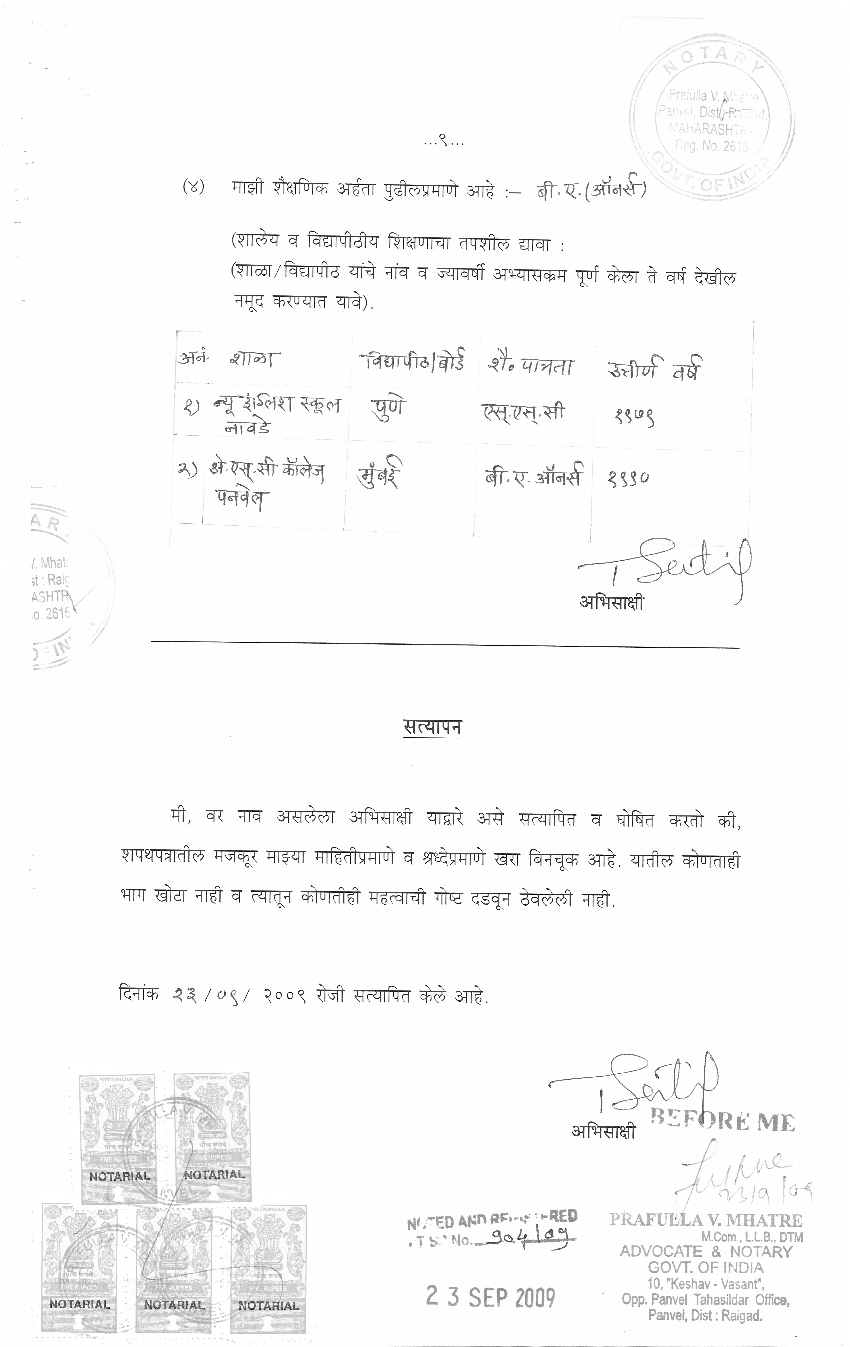 NOTARY
Prafulla V. Mhatre
Panvel, Dist: Raigad,
MAHARASHTRA
Reg. No. 2615
GOVT. OF INDIA
...९...
(४) माझी शैक्षणिक अर्हता पुढीलप्रमाणे आहे :– बी.ए.(ऑनर्स)
(शालेय व विद्यापीठीय शिक्षणाचा तपशील द्यावा :
(शाळा/विद्यापीठ यांचे नांव व ज्यावर्षी अभ्यासक्रम पूर्ण केला ते वर्ष देखील
नमूद करण्यात यावे).
अनं. शाळा विद्यापीठ/बोर्ड शै. पात्रता उत्तीर्ण वर्ष
१) न्यू इंग्लिश स्कूल नावडे पुणे एस्.एस्.सी १९७९
२) अे.एस्.सी कॉलेज पनवेल मुंबई बी.ए.ऑनर्स १९९०
AR
V. Mhat
st : Raig
ASHTR
o. 2615
अभिसाक्षी
सत्यापन
मी, वर नाव असलेला अभिसाक्षी याद्वारे असे सत्यापित व घोषित करतो की,
शपथपत्रातील मजकूर माझ्या माहितीप्रमाणे व श्रध्देप्रमाणे खरा बिनचूक आहे. यातील कोणताही
भाग खोटा नाही व त्यातून कोणतीही महत्वाची गोष्ट दडवून ठेवलेली नाही.
दिनांक २३/०९/ २००९ रोजी सत्यापित केले आहे.
अभिसाक्षी
BEFORE ME
23/9/09
NOTARIAL NOTARIAL
NOTARIAL NOTARIAL NOTARIAL
NOTED AND REGISTERED
No. 904/09
23 SEP 2009
PRAFULLA V. MHATRE
M.Com., L.L.B., DTM
ADVOCATE & NOTARY
GOVT. OF INDIA
10, "Keshav - Vasant",
Opp. Panvel Tahasildar Office,
Panvel, Dist : Raigad.